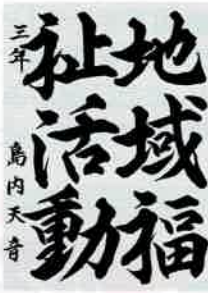 地域福
祉活動
三年 島内天音